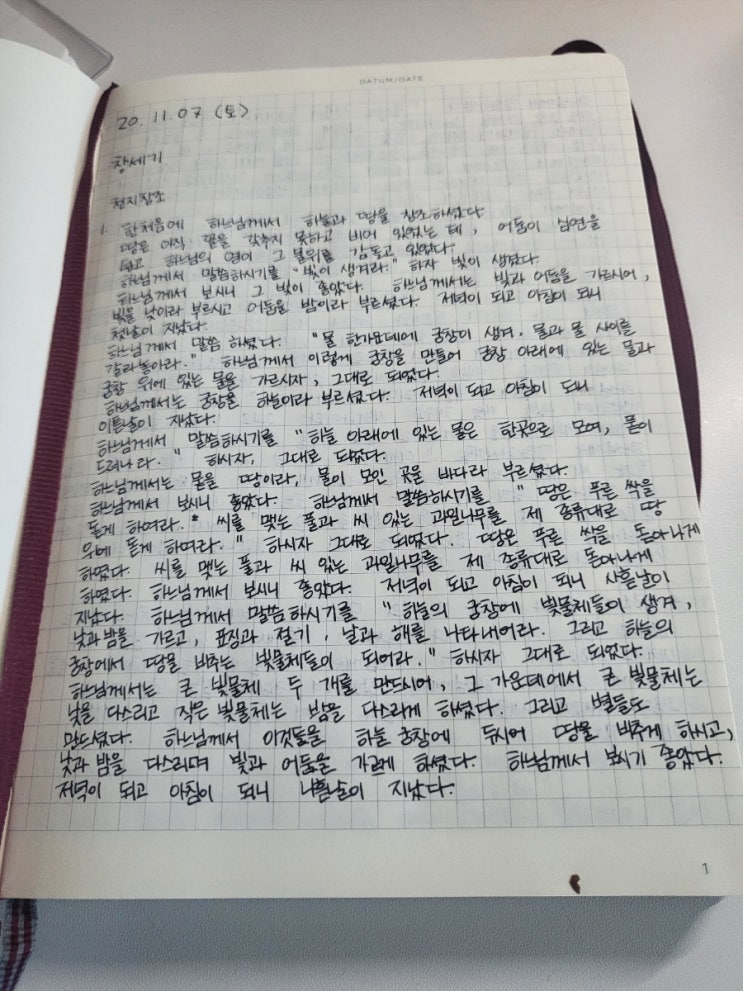 DATUM/DATE
20. 11. 07 (토)
창세기
천지창조
1. 한처음에 하느님께서 하늘과 땅을 창조하셨다.
땅은 아직 꼴을 갖추지 못하고 비어 있었는데, 어둠이 심연을
덮고 하느님의 영이 그 물위를 감돌고 있었다.
하느님께서 말씀하시기를 "빛이 생겨라." 하자 빛이 생겼다.
하느님께서 보시니 그 빛이 좋았다. 하느님께서는 빛과 어둠을 가르시어,
빛을 낮이라 부르시고 어둠을 밤이라 부르셨다. 저녁이 되고 아침이 되니
첫날이 지났다.
하느님께서 말씀 하셨다. "물 한가운데에 궁창이 생겨, 물과 물 사이를
갈라놓아라." 하느님께서 이렇게 궁창을 만들어 궁창 아래에 있는 물과
궁창 위에 있는 물을 가르시자, 그대로 되었다.
하느님께서는 궁창을 하늘이라 부르셨다. 저녁이 되고 아침이 되니
이튿날이 지났다.
하느님께서 말씀하시기를 "하늘 아래에 있는 물은 한곳으로 모여, 뭍이
드러나라." 하시자, 그대로 되었다.
하느님께서는 뭍을 땅이라, 물이 모인 곳을 바다라 부르셨다.
하느님께서 보시니 좋았다. 하느님께서 말씀하시기를 "땅은 푸른 싹을
돋게 하여라." 씨를 맺는 풀과 씨 있는 과일나무를 제 종류대로 땅
위에 돋게 하여라." 하시자 그대로 되었다. 땅은 푸른 싹을 돋아나게
하였다. 씨를 맺는 풀과 씨 있는 과일나무를 제 종류대로 돋아나게
하였다. 하느님께서 보시니 좋았다. 저녁이 되고 아침이 되니 사흗날이
지났다. 하느님께서 말씀하시기를 "하늘의 궁창에 빛물체들이 생겨,
낮과 밤을 가르고, 표징과 절기, 날과 해를 나타내어라. 그리고 하늘의
궁창에서 땅을 비추는 빛물체들이 되어라." 하시자 그대로 되었다.
하느님께서는 큰 빛물체 두 개를 만드시어, 그 가운데에서 큰 빛물체는
낮을 다스리고 작은 빛물체는 밤을 다스리게 하셨다. 그리고 별들도
만드셨다. 하느님께서 이것들을 하늘 궁창에 두시어 땅을 비추게 하시고,
낮과 밤을 다스리며 빛과 어둠을 가르게 하셨다. 하느님께서 보시기 좋았다.
저녁이 되고 아침이 되니 나흗날이 지났다.
1